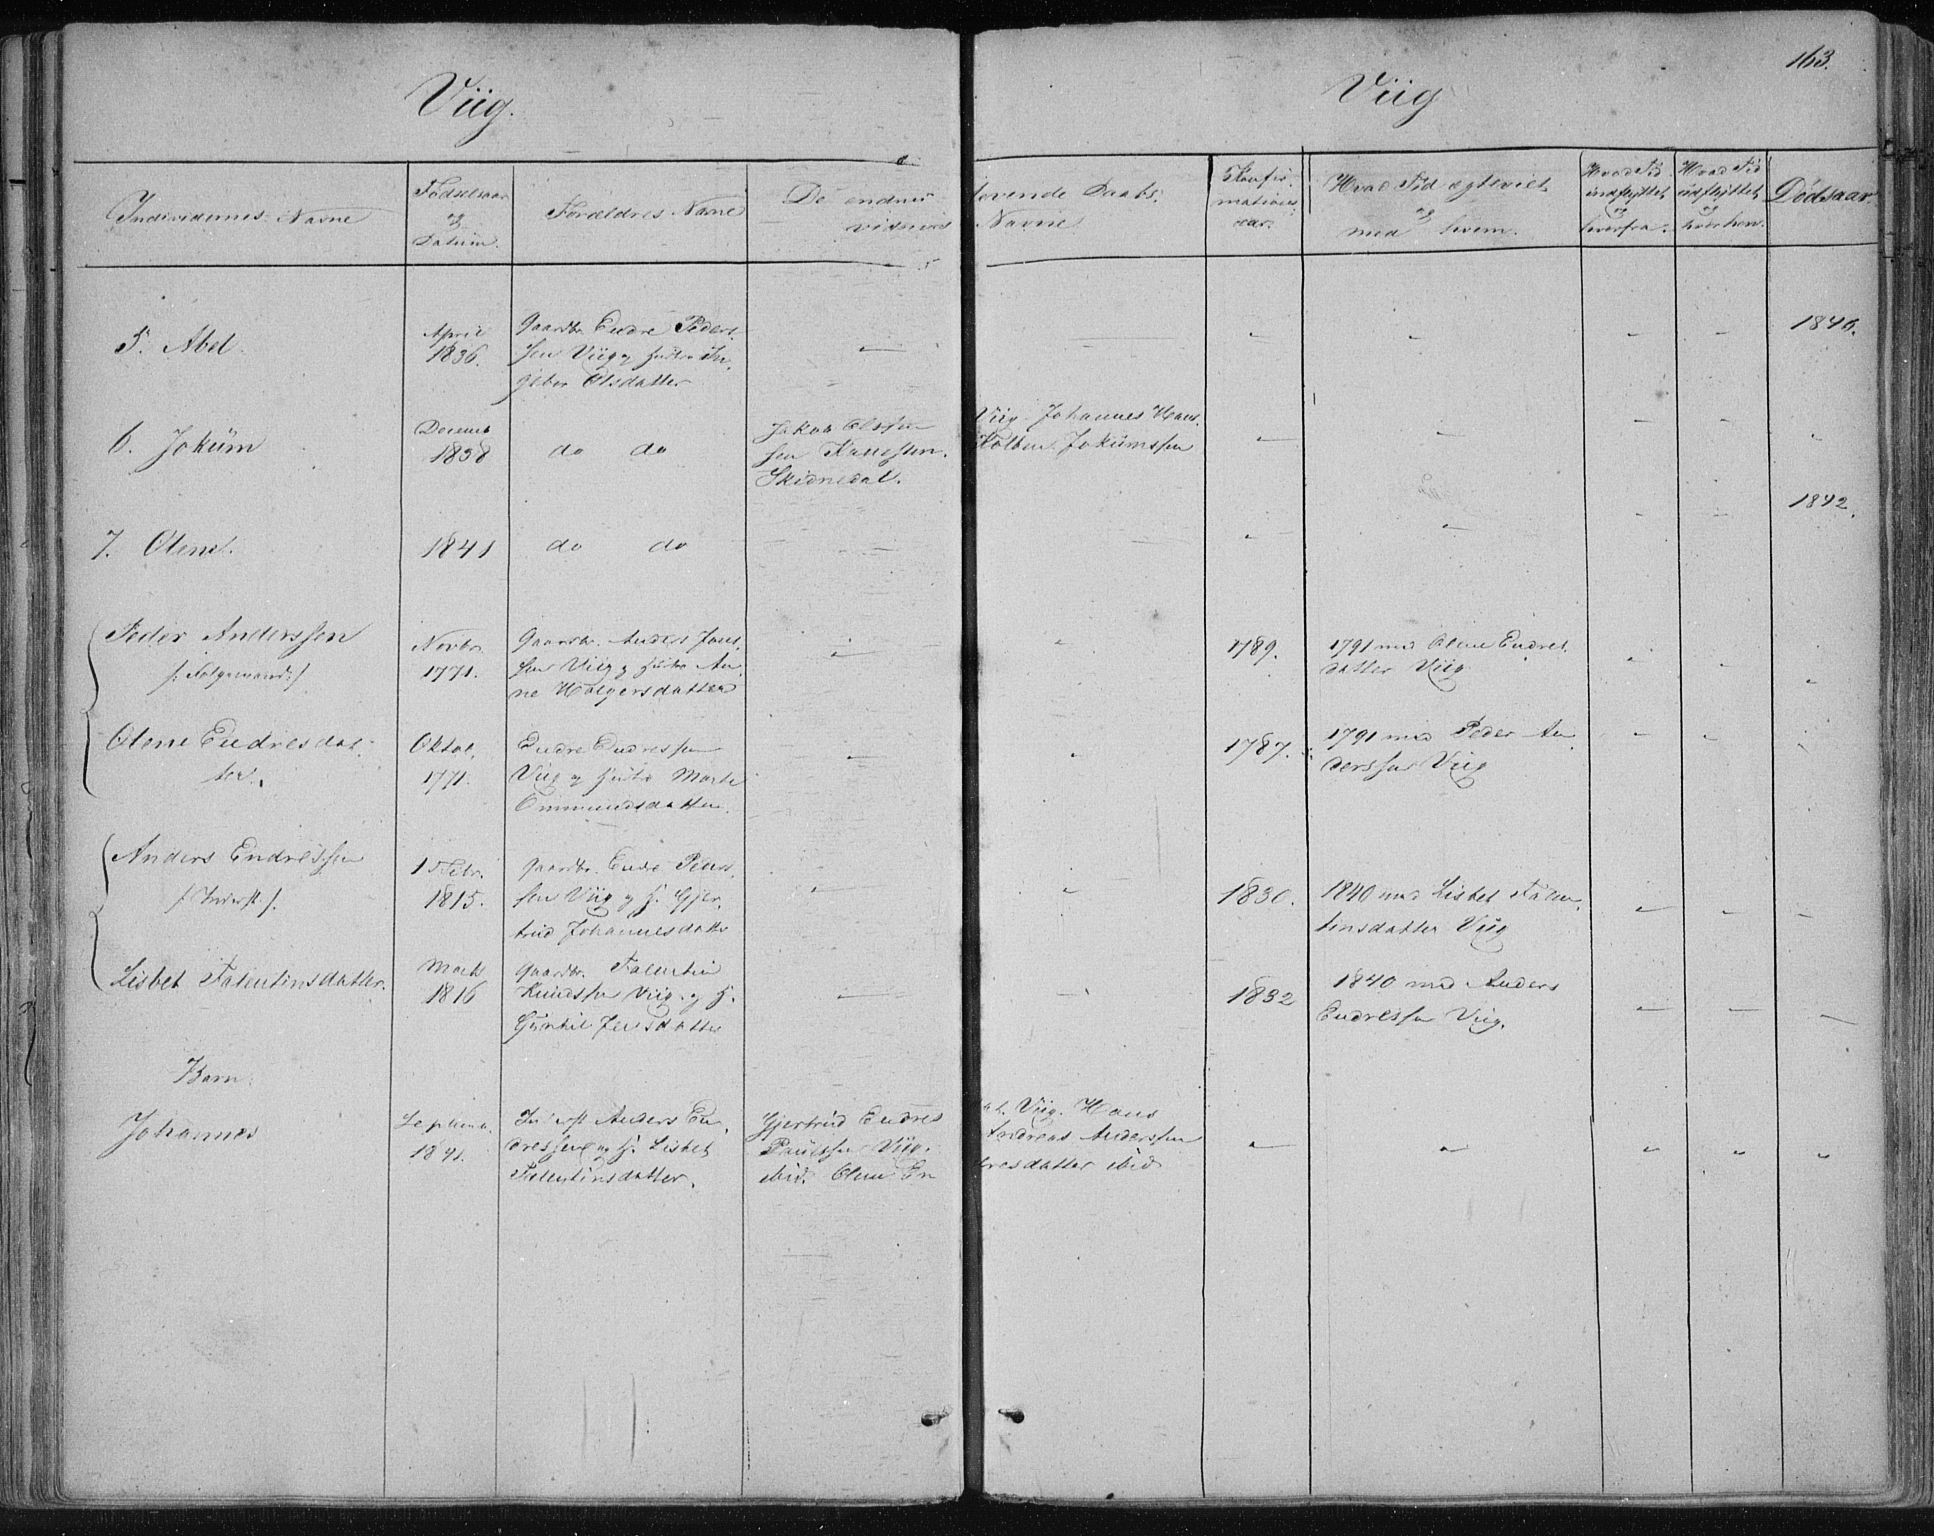 163.
Viig. Viig
Individernes Navne
Fødselsaar
og
Datum.
Forældres Navne
De endnu levende Daabs,
vidners Navne
Konfir-
mations-
aar.
Hvad Tid ægteviet
og
med hvem.
Hvad Tid
indflyttet
og
hverfra.
Hvad Tid
udflyttet
og
hvorhen.
Dødsaar.
5. Abel.
April
1836.
Gaardbr. Endre Peders-
sen Viig og Hustro In-
gebor Olsdatter
1846.
6. Jokum
Decemb
1838
do do
Jakob Olssen Viig. Johannes Hans
sen Jokumssen
Skidnedal.
7. Olene.
1841
do do
1842.
Peder Anderssen
Novbr.
1771.
Gaardbr. Anders Jons
sen Viig og Hustro An
ne Holgersdatter
1789.
1791 med Olene Endres
datter Viig
Olene Endresdat-
ter.
Oktob.
1771.
Endre Endressen
Viig og Hustro Marte
Ommundsdatter.
1787.
1791 med Peder An
derssen Viig
Anders Endressen
/: Inderst :/
15 Febr.
1815.
Gaardbr. Endre Peders
sen Viig og H. Gjer-
trud Johannesdatter
1830.
1840 med Lisbet Falen
tinsdatter Viig
Lisbet Falentinsdatter.
Marts
1816
Gaardbr. Falentin
Knudssen Viig og H.
Jensdatter
1832
1840 med Anders
Endressen Viig.
Barn.
Johannes
Septemb.
1841.
Inderst Anders En
dressen og H. Lisbet
Falentinsdatter.
Gjertrud Endres dat. Viig. Hans
Paulssen Viig. Andreas Anderssen
ibid. Olene En dresdatter ibid